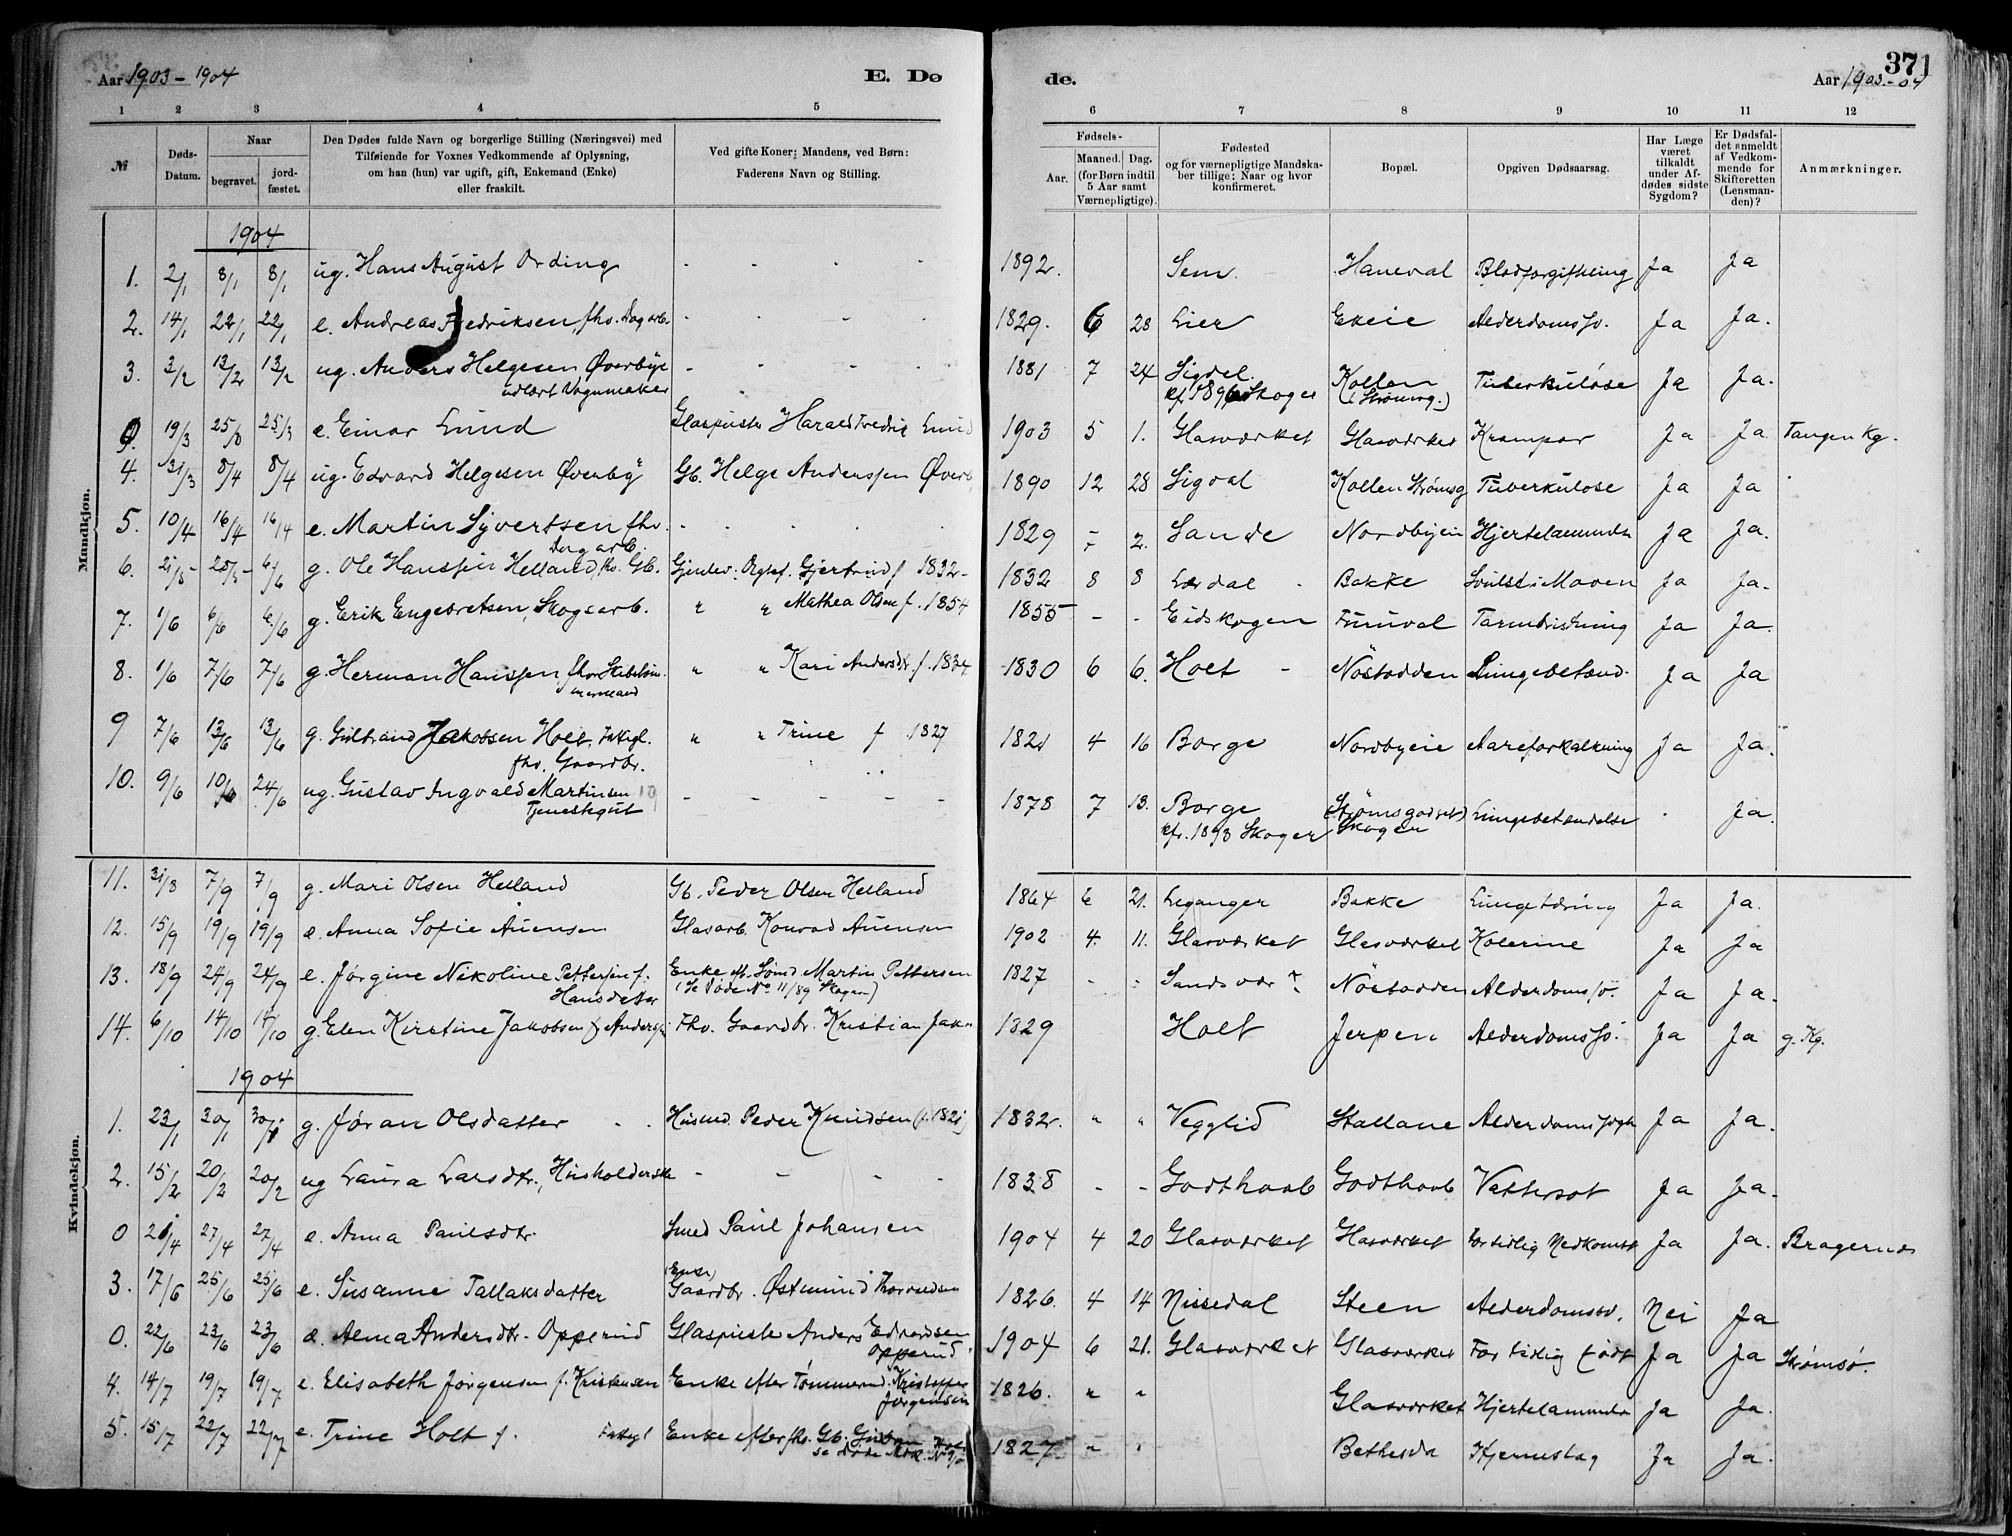 Aar 1903-1904
E. Dø
de.
371
Aar 1903-04
1 2 3 4 5 6 7 8 9 10 11 12
№
Døds-Datum.
Naar
begravet.
jord-fæstet.
Den Dødes fulde Navn og borgerlige Stilling (Næringsvei) med
Tilføiende for Voxnes Vedkommende af Oplysning,
om han (hun) var ugift, gift, Enkemand (Enke)
eller fraskilt.
Ved gifte Koner: Mandens, ved Børn:
Faderens Navn og Stilling.
Fødsels-
Aar.
Maaned. Dag.
(for Børn indtil
5 Aar samt
Værnepligtige).
Fødested
og for værnepligtige Mandska-
ber tillige: Naar og hvor
konfirmeret.
Bopæl.
Opgiven Dødsaarsag.
Har Læge
været
tilkaldt
under Af-
dødes sidste
Sygdom?
Er Dødsfal-
det anmeldt
af Vedkom-
mende for
Skifteretten
(Lensman-
den)?
Anmærkninger.
Mandkjøn.
1904
1. 2/1 8/1 8/1 ug. Hans August Ording 1892. Sem. Haneval Blodforgiftning Ja Ja
2. 14/1 22/1 22/1 e. Andreas Fredriksen, fhv. Dagarb. 1829. 6 28 Lier Ekeie Alderdomssv. Ja Ja.
3. 3/2 13/2 13/2 ug. Anders Helgesen Øverbye 1881 7 24 Sigdal Kollen Tuberkuløse Ja Ja.
udlært Vognmaker kf. 1896 Skoger (Strømsg.)
0. 19/3 25/3 25/3 e. Einar Lund Glaspuster Harald Fredrik Lund 1903 5 1. Glasværket Glasværket Krampar Ja Ja Tangen Kg.
4. 31/3 8/4 8/4 ug. Edvard Helgesen Øverby Gb. Helge Anderssen Øverb 1890 12 28 Sigdal Kollen Strømsg Tuberkulose Ja Ja
5. 10/4 16/4 16/4 e. Martin Syvertsen fhv. 1829 2. Sande Nordbyeie Hjertelammelse Ja Ja.
Dagarb.
6. 21/5 28/5 6/6 g. Ole Hanssen Helland, fhv. Gb. Gjenlev. Ægtef. Gjertrud f 1832 1832 8 8 Lærdal Bakke Svulst i Maven Ja Ja.
7. 1/6 6/6 6/6 g. Erik Engebretsen, Skogsarb. " " Mathea Olsen f. 1854 1855 - - Eidskogen Furuval Ja Ja.
8. 1/6 7/6 7/6 g. Herman Hanssen, fhv. Skibstøm- " " Kari Andersdtr f. 1834 1830 6 6. Holt Nøstodden Lungebetænd. Ja Ja
mermand
9 7/6 13/6 13/6 g. Gulbrand Jakobsen Holt, Fattigl. " " Trine f 1827 1821 4 16 Borge Nordbyeie Aareforkalkning Ja Ja.
fhv. Gaardbr.
10. 9/6 10/6 24/6 ug. Gustav Ingvald Martinsen 1878 7 13. Borge (Strømsgodset) Lungebetændelse Ja.
Tjenestegut kfr. 1893 Skoger Skoger
11. 31/8 7/9 7/9 g. Mari Olsen Helland Gb. Peder Olsen Helland 1864 6 21. Leganger Bakke Lungetæring Ja Ja.
12. 15/9 19/9 19/9 e. Anna Sofie Auensen Glasarb. Konrad Auensen 1902 4. 11. Glasværket Glasværket Kolerine Ja Ja
13. 18/9 24/9 24/9 e. Jørgine Nikoline Pettersen f. Enke eft. Sømd Martin Pettersen 1827 Sandsvær Nøstodden Alderdomssv. Ja Ja.
Hansdatter (Se Døde No 11/89 Skoger)
14. 6/10 14/10 14/10 g. Elen Kirstine Jakobsen f Anderss Fhv. Gaardbr. Kristian Jak 1829 Holt Jerpen Alderdomssv. Ja Ja g. Kg.
Kvindekjøn.
1904
1. 23/1 30/1 30/1 g. Jøran Olsdatter Husmd. Peder Knudsen (f. 1821) 1832. " " Vegglid Stallane Alderdomssvgh Ja Ja.
2. 15/2 20/2 20/2 ug Laura Larsdtr., Husholderske 1838 - - Godthaab Godthaab Vattersot Ja Ja.
0 21/4 27/4 27/4 e. Anna Paulsdtr. Smed Paul Johansen 1904 4 20 Glasværket Glasværket For tidlig Nedkomst Ja Ja. Bragernes
3. 17/6 25/6 25/6 e. Susanne Tallaksdatter (Enke) Gaardbr. Østmund Thorvaldsen 1826. 4 14 Nissedal Steen Alderdomssv. Nei Ja
0. 22/6 23/6 23/6 e. Alma Andersdtr. Opperud Glaspuster Anders Edvardsen 1904 6 21. Glasværket Glasværket For tidlig født Ja Ja Strømsø.
Opperud.
4. 14/7 19/7 19/7 e. Elisabeth Jørgensen f. Kristensen Enke efter Tømmermd. Kristoffer 1826. " " Glasværket Hjertelammelse Ja Ja.
Jørgensen
5. 15/7 22/7 22/7 e. Trine Holt f. Fattigl Enke efter fhv. Gb. Gulbran 1827 " " Bethesda Hjerneslag Ja Ja.
se døde